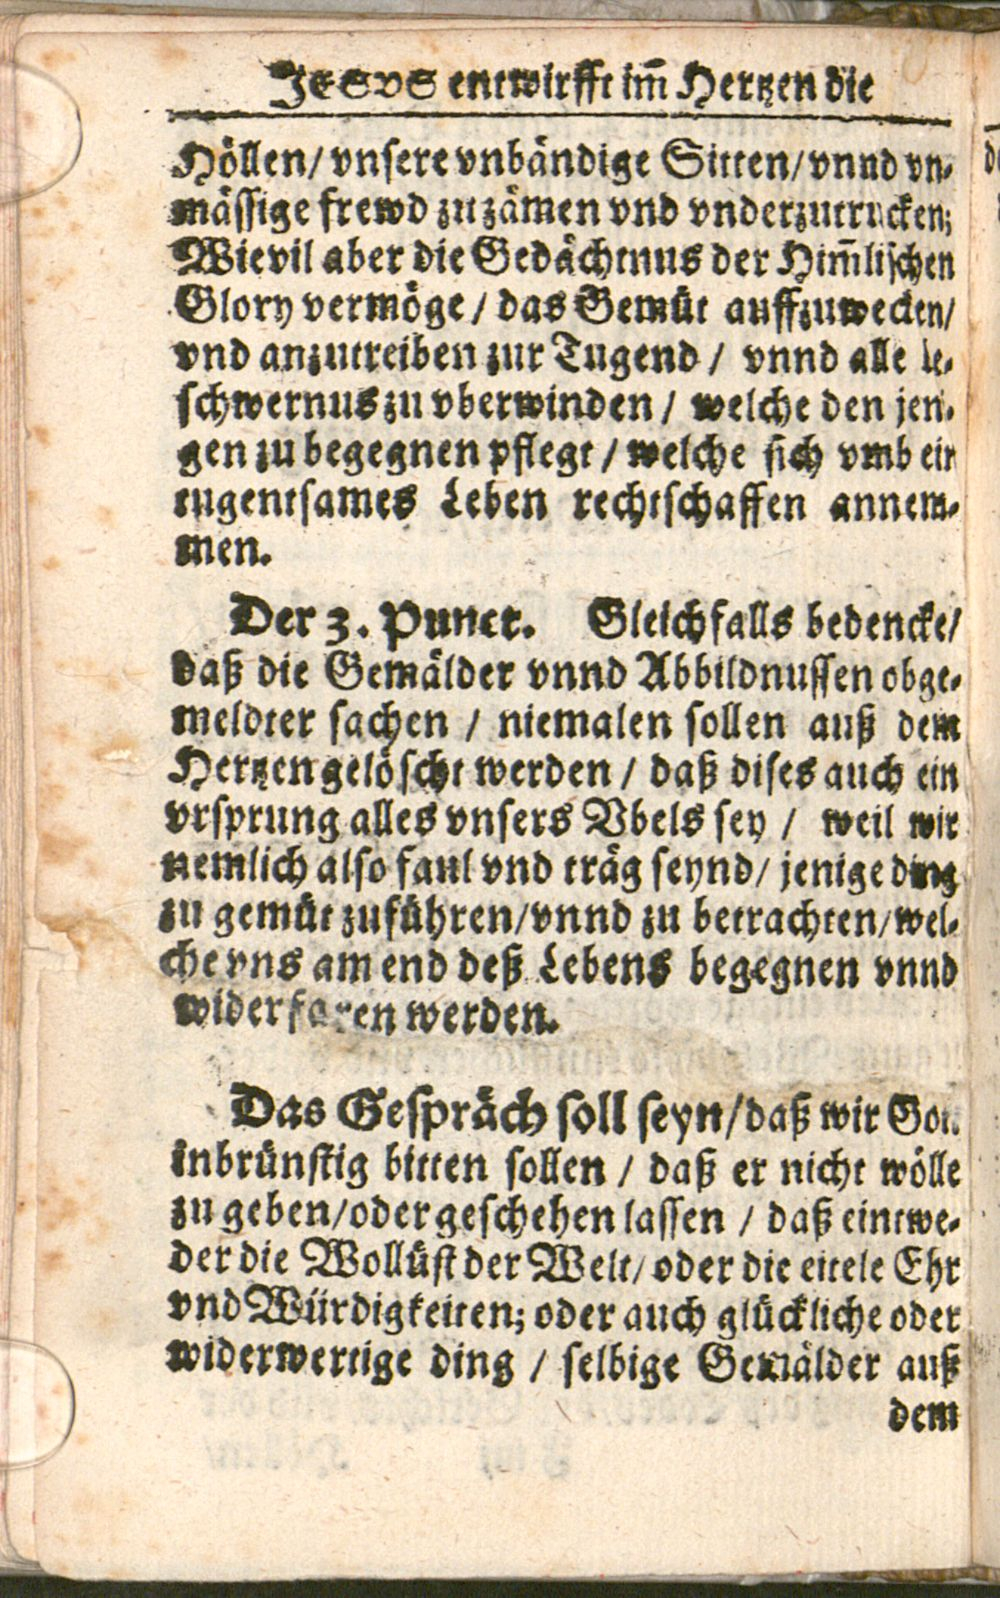 JESVS entwirfft im̃ Hertzen die
Höllen/ vnsere vnbändige Sitten/ vnnd vn-
mässige frewd zu zämen vnd vnderzutrucken;
Wievil aber die Gedächtnus der Him̃lischen
Glory vermöge / das Gemüt auffzuwecken/
vnd anzutreiben zur Tugend / vnnd alle be-
schwernus zu vberwinden / welche den jeni-
gen zu begegnen pflegt / welche sich vmb ein
tugentsames Leben rechtschaffen annem-
men.
Der 3. Punct. Gleichfalls bedencke/
daß die Gemälder vnnd Abbildnussen obge-
meldter sachen / niemalen sollen auß dem
Hertzen gelöscht werden / daß dises auch ein
vrsprung alles vnsers Vbels sey / weil wir
nemlich also faul vnd träg seynd/ jenige ding
zu gemüt zuführen/ vnnd zu betrachten/ wel-
che vns am end deß Lebens begegnen vnnd
widerfaren werden.
Das Gespräch soll seyn/ daß wir Gott
inbrünstig bitten sollen / daß er nicht wölle
zu geben/ oder geschehen lassen / daß eintwe-
der die Wollüst der Welt/ oder die eitele Ehr
vnd Würdigkeiten; oder auch glückliche oder
widerwertige ding / selbige Gemälder auß
dem